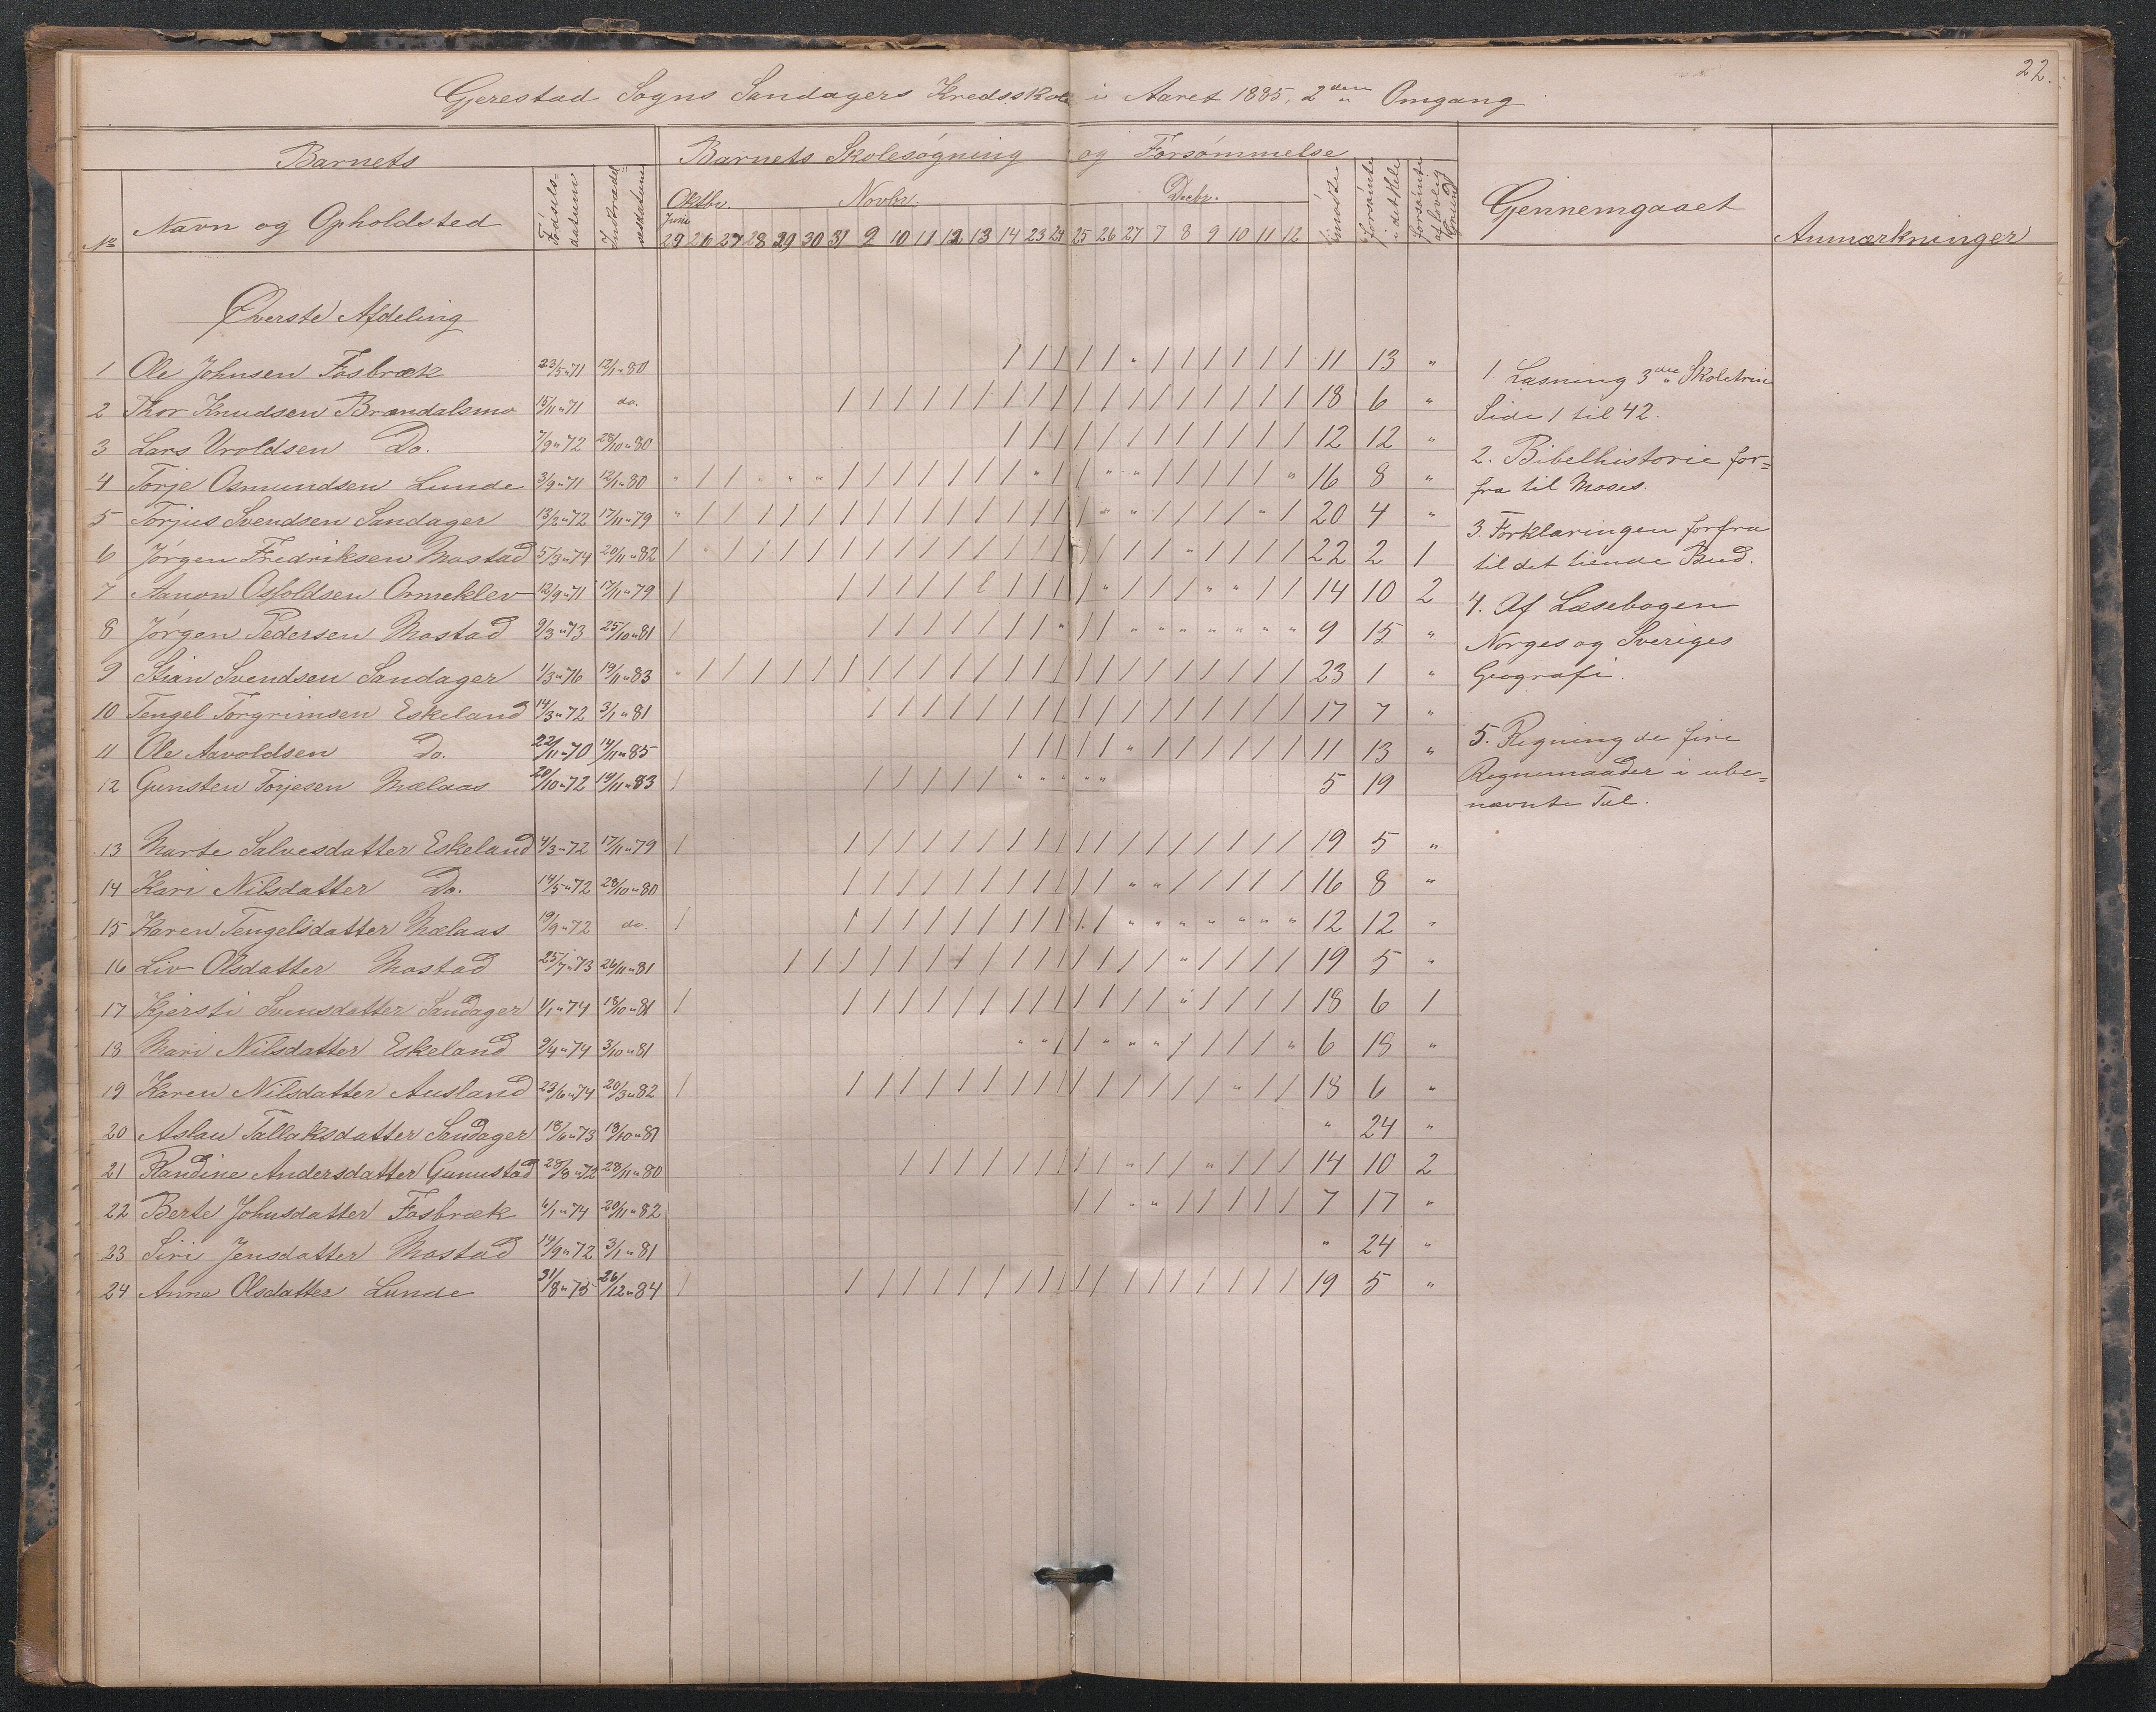 22.
Gjerestad Sogns Sandagers Kredsskole i Aaret 1885, 2den Omgang
Barnets Barnets Skolesøgning og Forsømmelse
No Navn og Opholdssted Fødsels-datum Indtrædelsesdatum Oktbr. Novbr. Decbr. mødte forsømte i det Hele forsømte af lovlig Grund Gjennemgaaet Anmærkninger
Juni
29 26 27 28 29 30 31 9 10 11 12 13 14 23 24 25 26 27 7 8 9 10 11 12
Øverste Afdeling
1 Ole Johnsen Fosbræk 23/5 " 71 12/1 " 80 / / / / / " / / / / / / 11 13 "
2 Thor Knudsen Brændalsmo 15/11 " 71 do. / / / / / / / / / / / / / / / / / 18 6 "
3 Lars Uroldsen Do. 7/9 " 72 28/10 " 80 / / / / / / / / / / / / 12 12 "
4 Torje Osmundsen Lunde 3/9 " 71 12/1 " 80 " / / " " / / / / / / / " / / " " / / / / / " 16 8 "
5 Torjus Svendsen Sandager 13/2 " 72 17/11 " 79 " / / / / / / / / / / / / / / / " " / / / / " / 20 4 "
6 Jørgen Fredriksen Mostad 5/3 " 74 20/11 " 82 / " / / / / / / / / / / / / / / / / / " / / / / 22 2 1
7 Aanon Osfoldsen Ormeklev 12/9 " 71 17/11 " 79 / / / / / / / / / / " / / / " " / / 14 10 2
8 Jørgen Pedersen Mostad 9/3 " 73 25/10 " 81 / / / / / / / / " / / " " " " " " " 9 15 "
9 Stian Svendsen Sandager 1/3 " 76 19/11 " 83 " / / / / / / / / / / / / / / / / / / / / / / / 23 1 "
10 Tengel Torgrimsen Eskeland 14/3 " 72 3/1 " 81 / / / / / / / / / / / / / / / / / 17 7 "
11 Ole Aavoldsen Do. 22/11 " 70 14/11 " 85 / / / / / " / / / / / / 11 13 "
12 Gunsten Torjesen Mælaas 20/10 " 72 14/11 " 83 / / / / / / " " " " " 5 19
13 Marte Salvesdatter Eskeland 4/3 " 72 17/11 " 79 / / / / / / / / / / / / / / / / / / 19 5 "
14 Kari Nilsdatter Do. 14/5 " 72 28/10 " 80 / / / / / / / / / / / " " / / / / / 16 8 "
15 Karen Tengelsdatter Mælaas 19/9 " 72 do. / / / / / / / / / / / " " " " " " " 12 12 "
16 Liv Olsdatter Mostad 25/7 " 73 26/11 " 81 / / / / / / / / / / / / / / " / / / / 19 5 "
17 Kjersti Svensdatter Sandager 1/1 " 74 18/10 " 81 / / / / / / / / / / / / / / " / / / / 18 6 1
18 Mari Nilsdatter Eskeland 9/4 " 74 3/10 " 81 " " / / " " " / / / / " 6 18 "
19 Karen Nilsdatter Ausland 23/6 " 74 20/3 " 82 / / / / / / / / / / / / / / / " / / 18 6 "
20 Aslau Tallaksdatter Sandager 18/6 " 73 18/10 " 81 " 24 "
21 Randine Andersdatter Gunustad 28/8 " 72 28/11 " 80 / / / / / / / / / " / / " / / / 14 10 2
22 Berte Johnsdatter Fosbræk 6/1 " 74 20/11 " 82 / / " " / / / / / 7 17 "
23 Siri Jensdatter Mostad 14/9 " 72 3/1 " 81 " 24 "
24 Anne Olsdatter Lunde 31/8 " 75 26/12 " 84 / / / / / / / / / / / / / / / / / / 19 5 "
1. Læsning 3die Skoletrin
Side 1 til 42.
2. Bibelhistorie for=
fra til Moses.
3. Forklaringen forfra
til det tiende Bud.
4. Af Læsebogen
Norges og Sveriges
Geografi.
5. Regning de fire
Regnemaader i ube=
nævnte Tal.